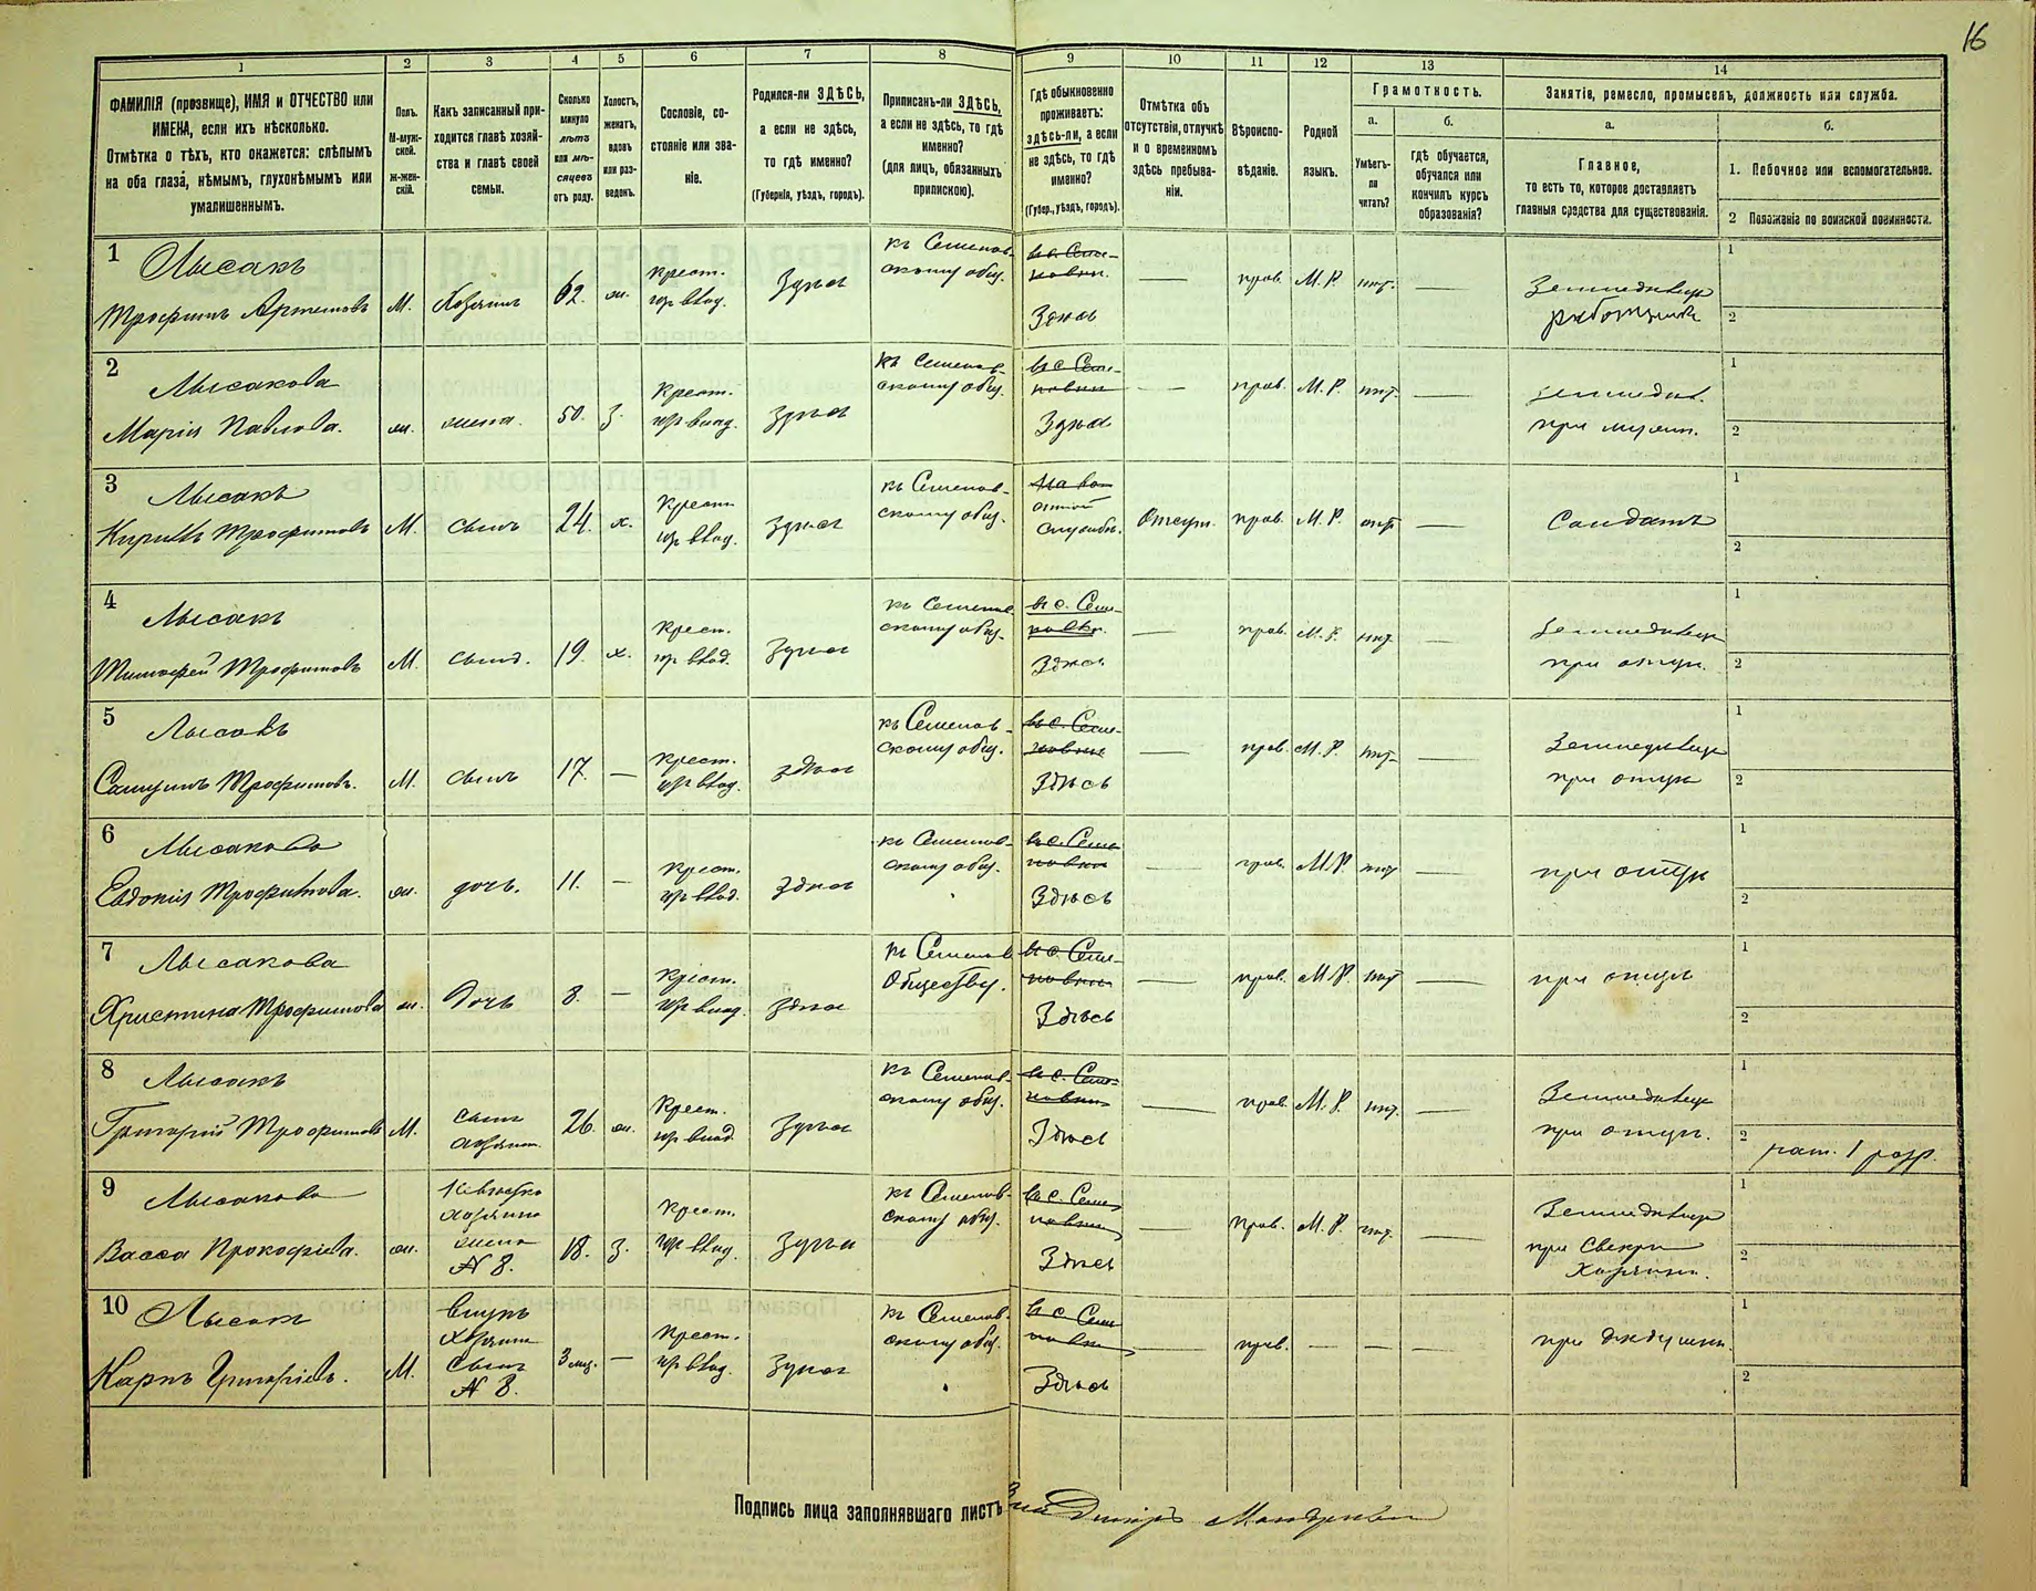 16
1 2 3 4 5 6 7 8 9 10 11 12 13 14
ФАМИЛІЯ (прозвище), ИМЯ и ОТЧЕСТВО или
ИМЕНА, если ихъ нѣсколько.
Отмѣтка о тѣхъ, кто окажется: слѣпымъ
на оба глаза, нѣмымъ, глухонѣмымъ или
умалишеннымъ.
Полъ.
М-муж-
ской.
ж-жен-
скій.
Какъ записанный при-
ходится главѣ хозяй-
ства и главѣ своей
семьи.
Сколько
минуло
лѣтъ
или мѣ-
сяцевъ
отъ роду.
Холостъ,
женатъ,
вдовъ
или раз-
веденъ.
Сословіе, со-
стояніе или зва-
ніе.
Родился-ли ЗДѢСЬ,
а если не здѣсь,
то гдѣ именно?
(Губернія, уѣздъ, городъ).
Приписанъ-ли ЗДѢСЬ,
а если не здѣсь, то гдѣ
именно?
(для лицъ, обязанныхъ
припискою).
Гдѣ обыкновенно
проживаетъ:
здѣсь-ли, а если
не здѣсь, то гдѣ
именно?
(Губер., уѣздъ, городъ).
Отмѣтка объ
отсутствіи, отлучкѣ
и о временномъ
здѣсь пребыва-
ніи.
Вѣроиспо-
вѣданіе.
Родной
языкъ.
Грамотность.
а.
Умѣетъ-
ли
читать?
б.
гдѣ обучается,
обучался или
кончилъ курсъ
образованія?
Занятіе, ремесло, промыселъ, должность или служба.
а.
Главное,
то есть то, которое доставляетъ
главныя средства для существованія.
б.
1. Побочное или вспомогательное.
2 Положеніе по воинской повинности.
1 Лысакъ
Трофимъ Артемовъ М. Хозяинъ 62. ж. крест. Здѣсь
къ Семенов-
скому общ.
Здѣсь — прав. М. Р. нѣт. —
Земледѣлецъ
1
2
2 Лысакова
Марія Павлова. ж. жена. 50. З. Крест. здѣсь
къ Семенов-
скому общ.
Здѣсь — прав. М. Р. нѣт. —
земледѣл.
1
2
3 Лысакъ
Кирилъ Трофимовъ М. сынъ 24. х. Крест. здѣсь
къ Семенов-
скому общ.
службѣ. Отсут. прав. М. Р. —
Солдатъ
1
2
4 Лысакъ
Тимофей Трофимовъ М. сынъ. 19. х. Крест. Здѣсь
къ Семенов-
скому общ.
Здѣсь — прав. М. Р. нѣт. —
Земледѣлецъ
при отцѣ.
1
2
5 Лысакъ
Самуилъ Трофимовъ. М. сынъ 17. — крест. здѣсь
къ Семенов-
скому общ.
Здѣсь — прав. М. Р. нѣт. —
Земледѣлецъ
при отцѣ
1
2
6 Лысакова
Евдокія Трофимова. ж. дочь. 11. — Крест. Здѣсь
къ Семенов-
скому общ.
Здѣсь — прав. М. Р. нѣт —
при отцѣ
1
2
7 Лысакова
Христина Трофимова ж. дочь 8. — Крест. здѣсь
къ Семенов
Обществу.
Здѣсь — прав. М. Р. нѣт —
при отцѣ
1
2
8 Лысакъ
Григорій Трофимовъ М. сынъ хозяина. 26. ж. Крест. Здѣсь
къ Семенов-
скому общ.
Здѣсь — прав. М. Р. нѣт. —
Земледѣлецъ
при отцѣ.
1
2 рат. 1 разр.
9 Лысакова
Васса Прокофіева. ж.
Невѣстка
хозяина
жена
№ 8.
18. З. Крест. Здѣсь
къ Семенов-
скому общ.
Здѣсь — прав. М. Р. нѣт. —
Земледѣлецъ
при Свекрѣ
Хозяинѣ.
1
2
10 Лысакъ
Карпъ Григоріевъ. М.
Внукъ
хозяина
сынъ
№ 8.
3 мѣс. — Крест. Здѣсь
къ Семенов-
скому общ.
Здѣсь — прав. — — —
при дѣдушкѣ.
1
2
Подпись лица заполнявшаго листъ